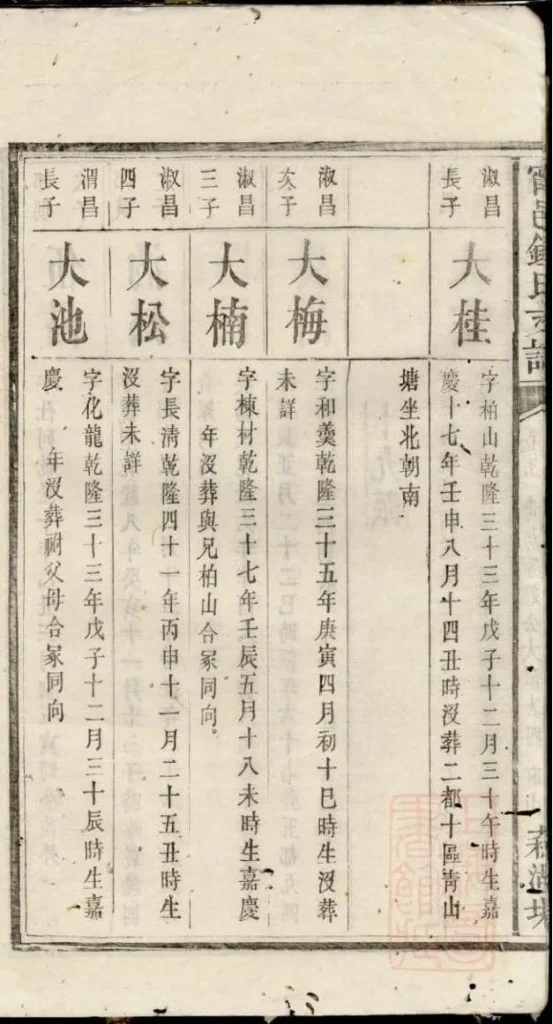 淑昌
長子
大桂
字柏山乾隆三十三年戊子十二月三十午時生嘉
慶十七年壬申八月十四丑時沒葬二都十區靑山
塘坐北朝南
淑昌
次子
大梅
字和羹乾隆三十五年庚寅四月初十巳時生沒葬
未詳
淑昌
三子
大楠
字棟材乾隆三十七年壬辰五月十八未時生嘉慶
年沒葬與兄柏山合冢同向
淑昌
四子
大松
字長清乾隆四十一年丙申十一月二十五丑時生
沒葬未詳
渭昌
長子
大池
字化龍乾隆三十三年戊子十二月三十辰時生嘉
慶 年沒葬祔父母合冢同向